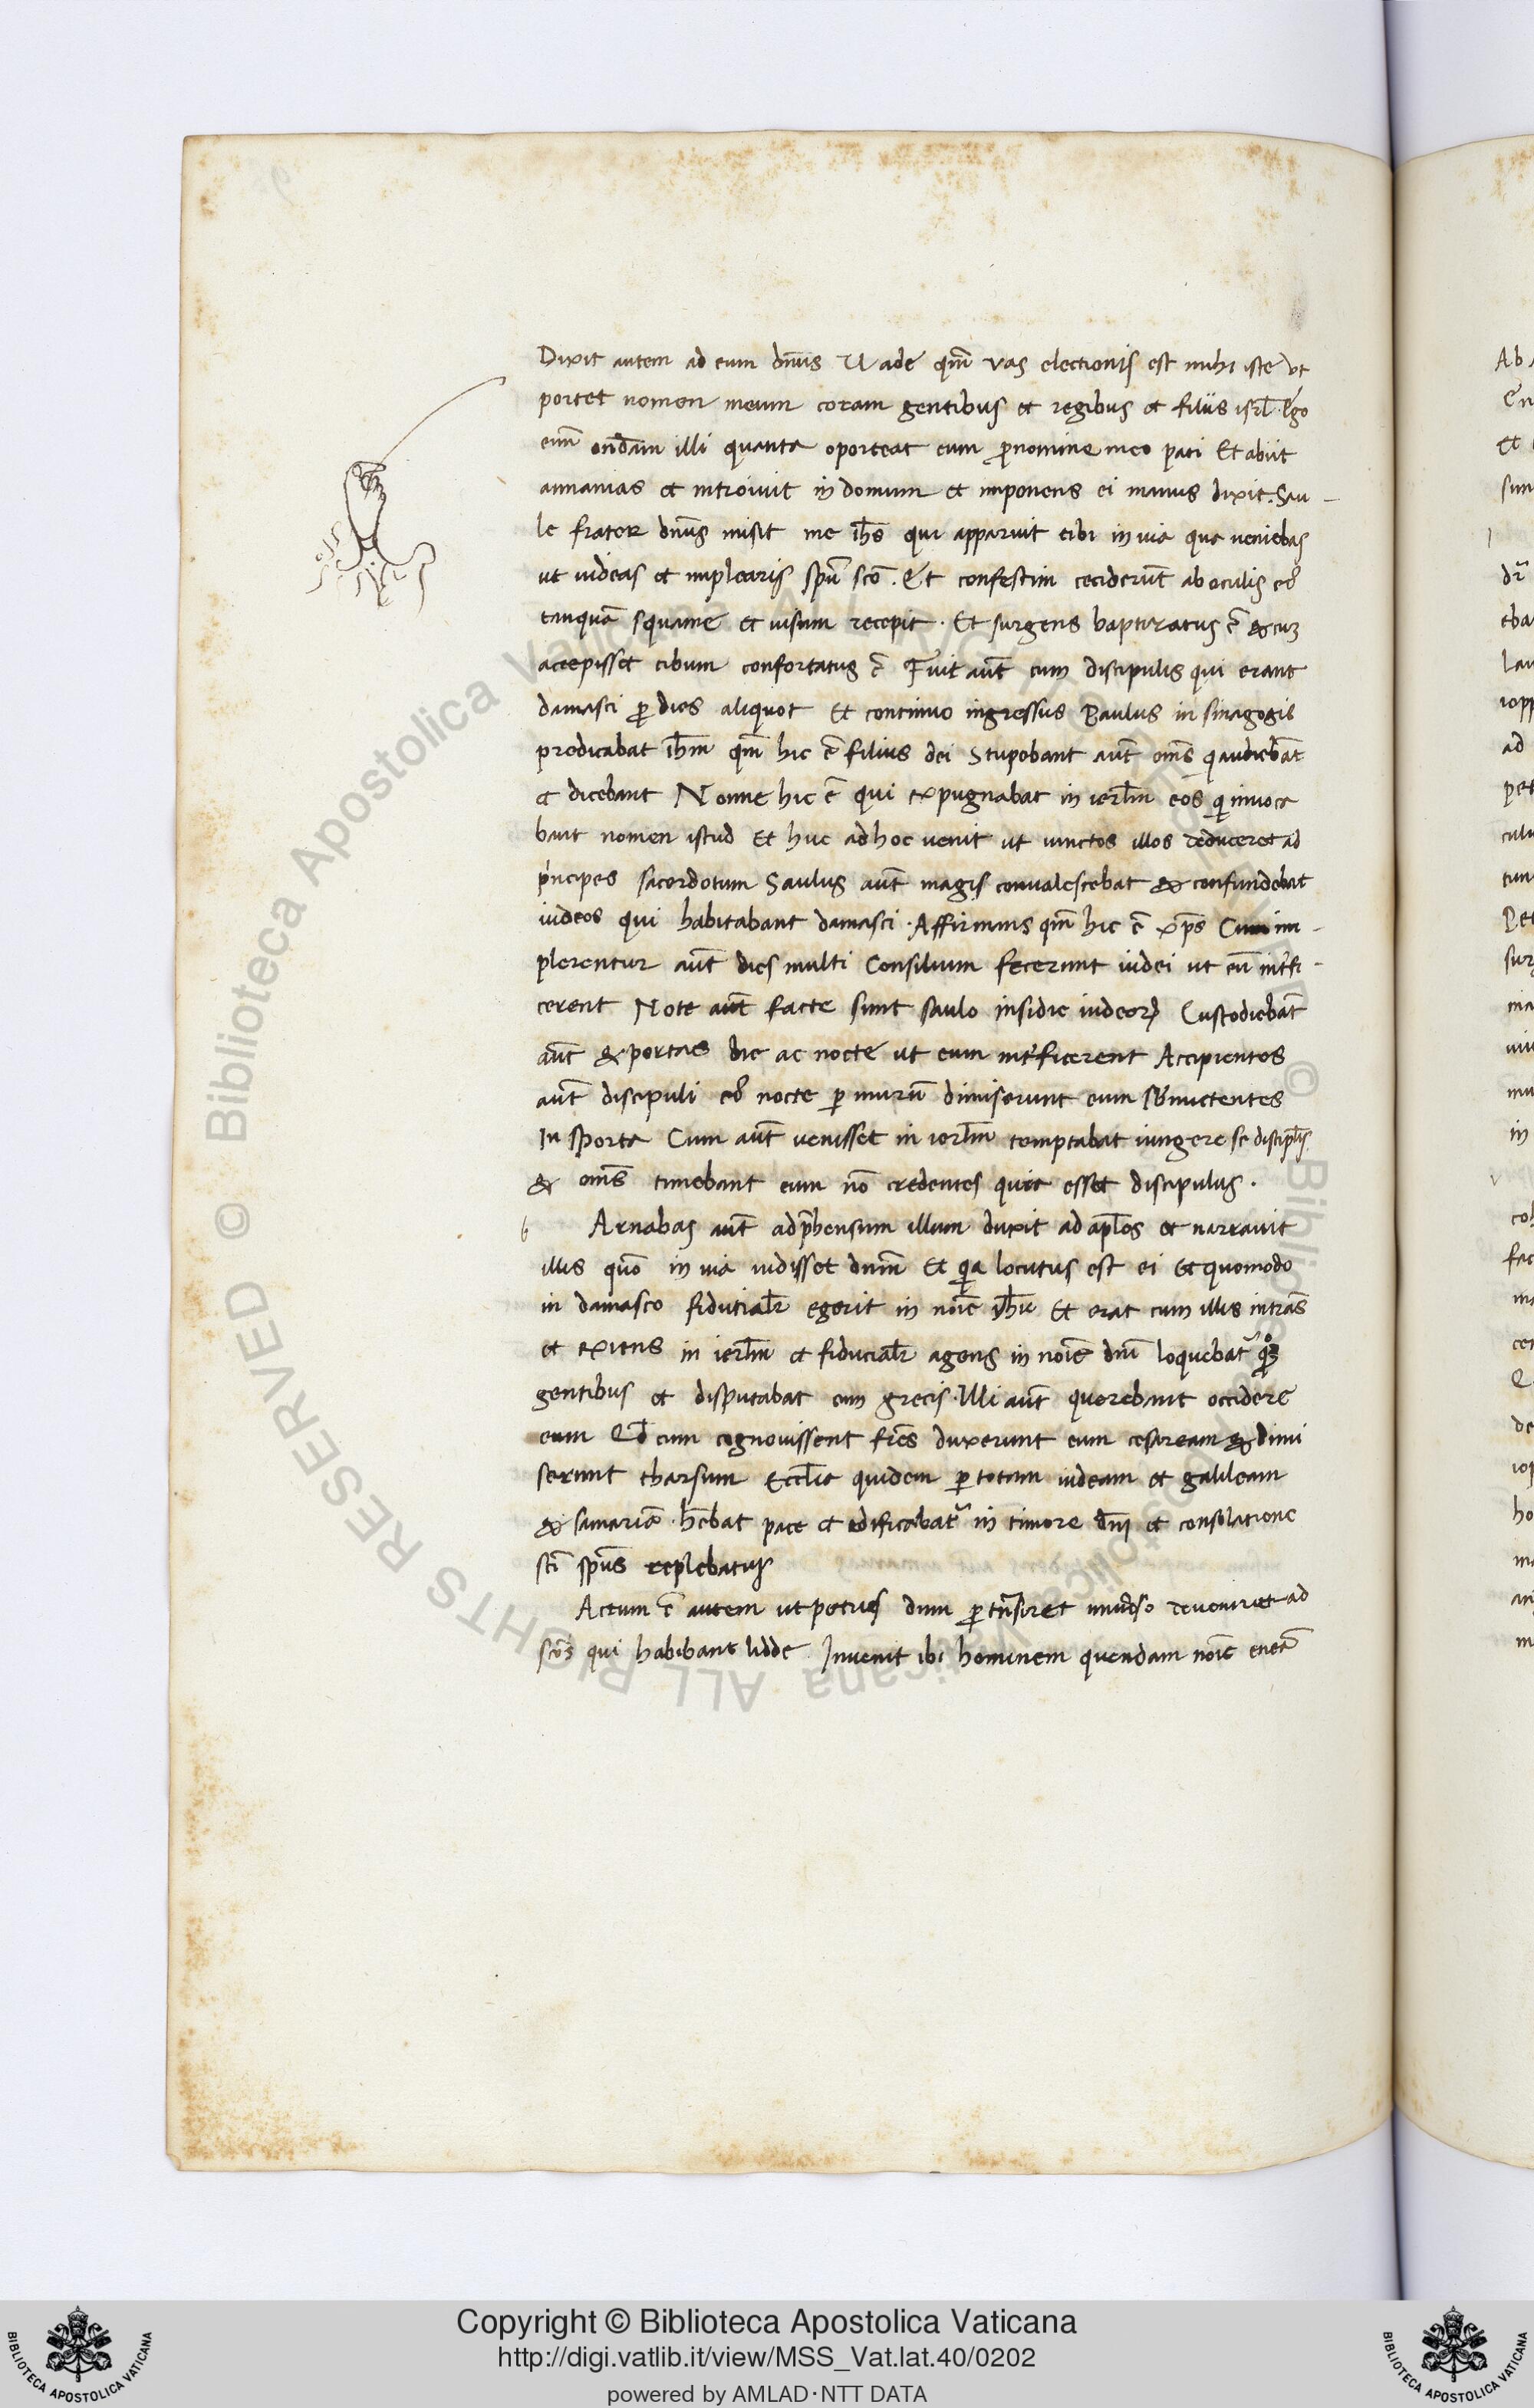 Dixit autem ad eum dn̄us Uade qm̄ vas electionis est mihi iste ut
portet nomen meum coram gentibus et regibus et filiis isrl̄. Ego
eni᷒m ondam̄ illi quanta oporteat eum ꝓ nomine meo pati Et abiit
annanias et introiuit in domum et imponens ei manus dixit. Sau-
le frater dn̄us misit me ih̄s qui apparuit tibi in uia qua ueniebas
ut uideas et implearis spū scō. Et confestim ceciderūt ab oculis eꝰ
tanquā squame et uisum recepit. Et surgens baptizatus ē & cuꝫ
accepisset cibum confortatus ē Fuit aūt cum discipulis qui erant
damasci ꝑ dies aliquot Et continuo ingressus Paulus in sinagogis
predicabat ih̄m qm̄ hic ē filius dei Stupebant aūt om̄s q audiebāt
et dicebant Nonne hic ē qui expugnabat in ierl̄m eos qi inuoca
bant nomen istud Et huc ad hoc uenit ut uinctos illos deduceret ad
pincipes sacerdotum Saulus aūt magis conualescebat & confundebat
iudeos qui habitabant damasci. Affirmans qm̄ hic ē xp̄s Cum im-
plerentur aūt dies multi Consilium fecerunt iudei ut eū int̄fi-
cerent Note aūt facte sunt saulo insidie iudeoꝝ Custodiebāt
aūt & portas die ac nocte ut eum int̄ficerent Accipientes
aūt discipuli eꝰ nocte ꝑ murū dimiserunt eum sb̄mictentes
In sporta Cum aūt uenisset in ierl̄m temptabat iungere se discipl̄is
& om̄s timebant eum nō credentes quia esset discipulus.
b Arnabas aūt adp̄hensum illum duxit ad apl̄os et narrauit
illis quō in uia uidisset dnm̄ Et qia locutus est ei Et quomodo
in damasco fiducial̄r egerit in noīe ih̄u Et erat cum illis intrās
et exiens in ierl̄m et fiducial̄r agens in noīe dnī loquebat᷑ qꝫ
gentibus et disputabat cum grecis. Illi aūt querebant occidere
eum Qd̄ cum cognouissent fr̄es duxerunt eum cesaream & dimi
serunt tharsum Eccl̄ia quidem ꝑ totam iudeam et galileam
& samariā h̄ebat pace et edificabat᷑ in timore dn̄i et consolatione
scī sp̄us replebatur
Actum ē autem ut petrus dum ꝑtn̄siret uniu̾so deueniret ad
scōs qui habibant lidde. Inuenit ibi hominem quendam noīe eneā
Copyright © Biblioteca Apostolica Vaticana
http://digi.vatlib.it/view/MSS_Vat.lat.40/0202
powered by AMLAD·NTT DATA